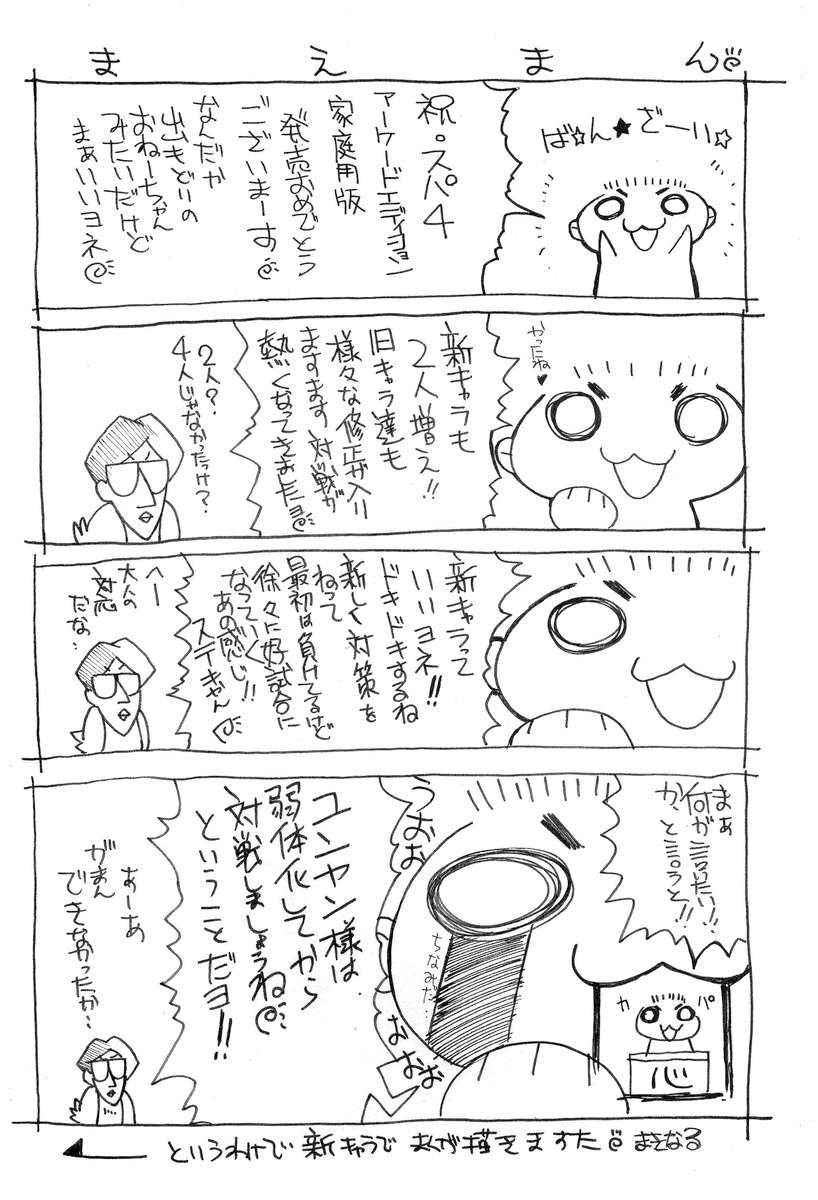 まえまん
ば☆ん★ざーい☆
祝。スパ4
アーケードエディション
家庭用版
発売おめでとう
ございまーす
なんだか
出もどりの
おねーちゃん
みたいだけど
まぁいいヨネ
やったね♥
新キャラも
2人増え!!
旧キャラ達も
様々な修正が入り
ますます対戦が
熱くなってきましたヨ
2人?
4人じゃなかったっけ?
新キャラって
いいヨネ!!
ドキドキするね
新しく対策を
ねって
最初は負けてるけど
徐々に好試合に
なっていく
あの感じ!!
ステキやん
へー
大人の
対応
だな…
まぁ
何が言いたい!!
か、と言うと!!
カパ
心
うおお
なおお
ちなみだ…
ユンヤン様は
弱体化してから
対戦しましょうね
ということだヨ!!
あーあ
がまん
できなかったか…
というわけで 新キャラで まんが描きますた まさなる